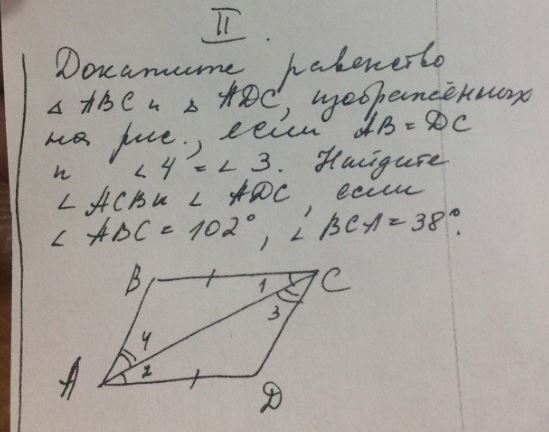 II.
Докажите равенство
△ ABC и △ ADC, изображённых
на рис., если AB = DC
и ∠4 = ∠3. Найдите
∠ ACB и ∠ ADC, если
∠ ABC = 102°, ∠ BCA = 38°.
B 1 C
3
4
A 2
D